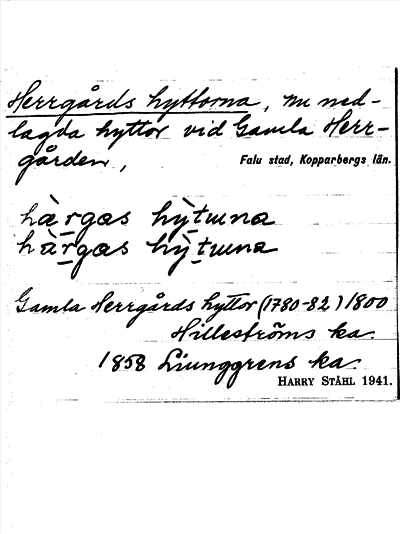 Herrgårds hyttorna, nu ned-
lagda hyttor vid Gamla Herr-
gården,
Falu stad, Kopparbergs län.
hàrgas hỳtuna
hàrgas hỳtuna
Gamla Herrgårds hyttor (1780-82) 1800
Hilleströms ka.
1858 Ljunggrens ka.
HARRY STÅHL 1941.